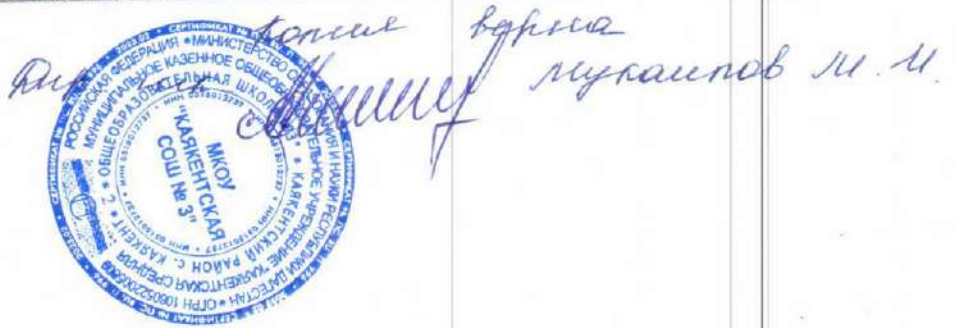 Копия верна
Мукаилов М. М.
РОССИЙСКАЯ ФЕДЕРАЦИЯ * МИНИСТЕРСТВО ОБРАЗОВАНИЯ И НАУКИ РЕСПУБЛИКИ ДАГЕСТАН * ОГРН
МУНИЦИПАЛЬНОЕ КАЗЕННОЕ ОБЩЕОБРАЗОВАТЕЛЬНОЕ УЧРЕЖДЕНИЕ "КАЯКЕНТСКАЯ СРЕДНЯЯ
ОБЩЕОБРАЗОВАТЕЛЬНАЯ ШКОЛА
КАЯКЕНТСКИЙ РАЙОН С. КАЯКЕНТ * 2 *
МКОУ
"КАЯКЕНТСКАЯ
СОШ № 3"